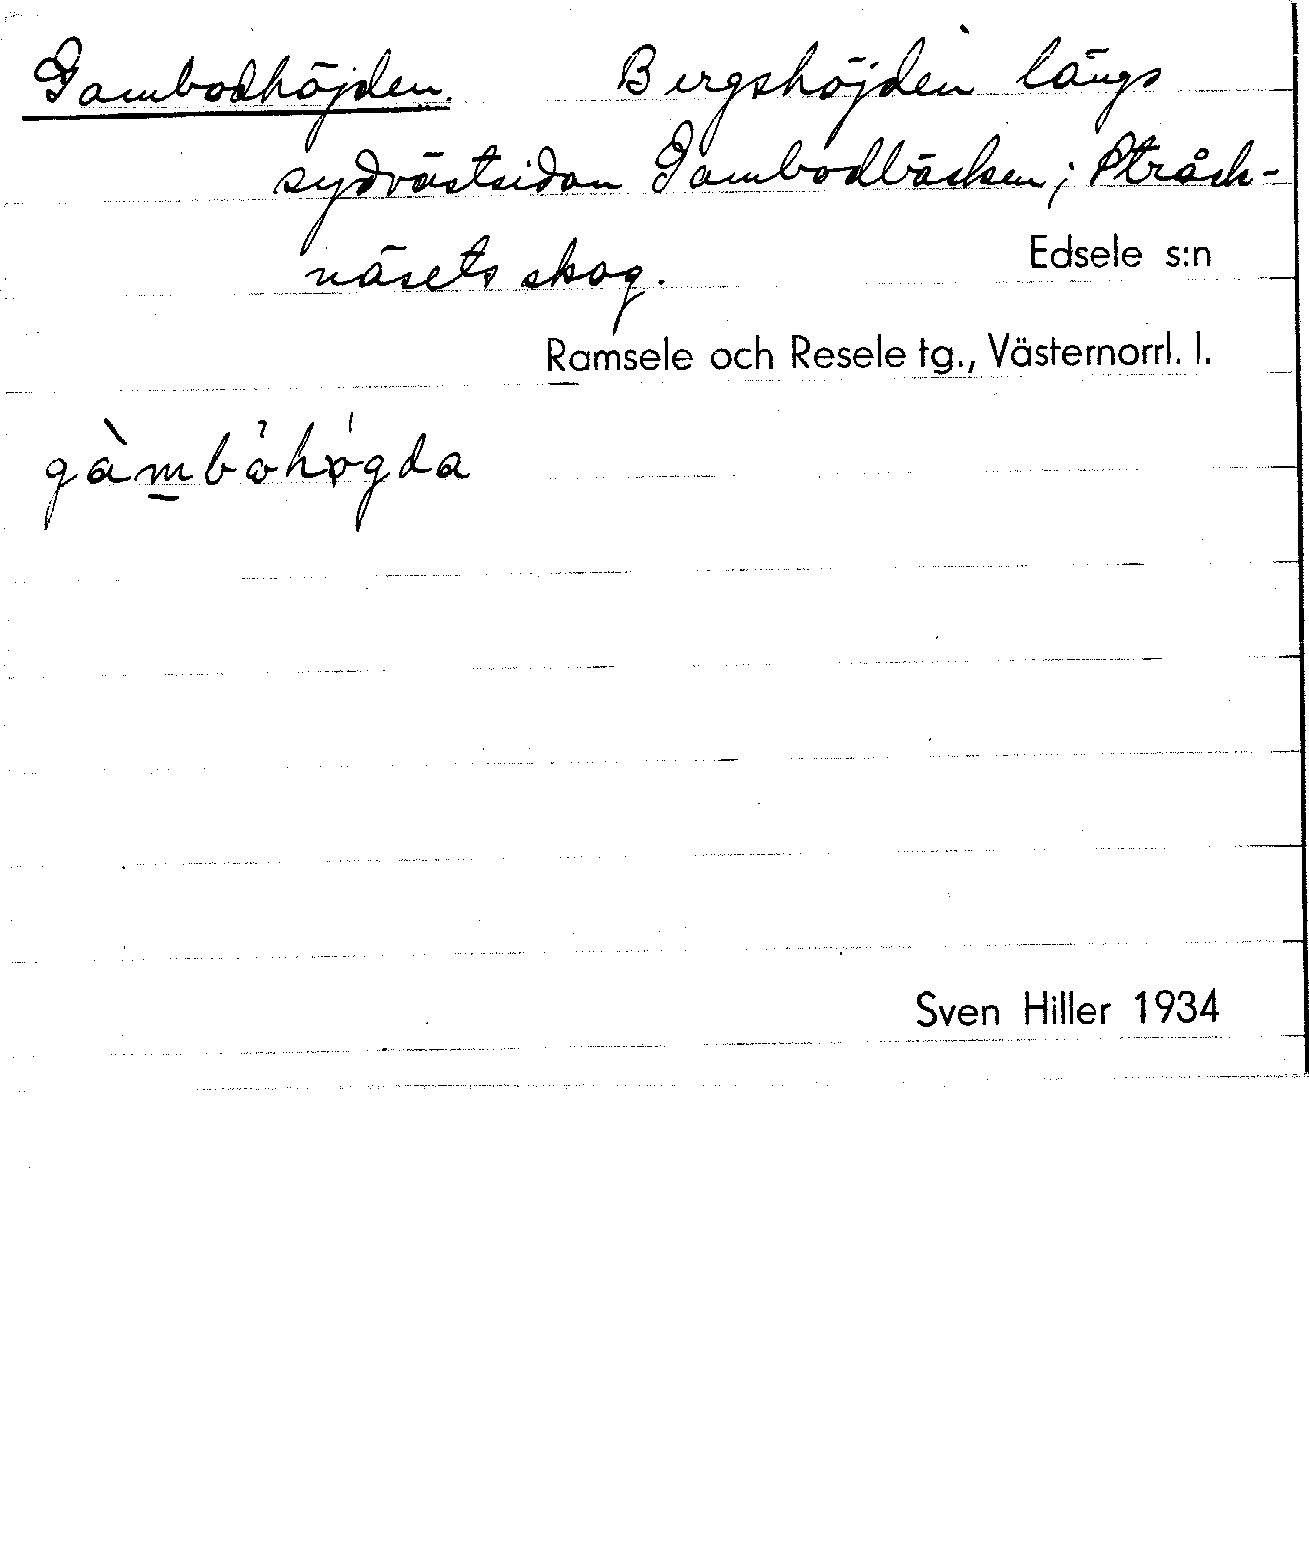 Gambodhöjden. Bergshöjden längs
sydvästsidan Gambodbäcken; Stråck-
näsets skog. Edsele s:n
Ramsele och Resele tg., Västernorrl. l.
gàmbòhøgda
Sven Hiller 1934